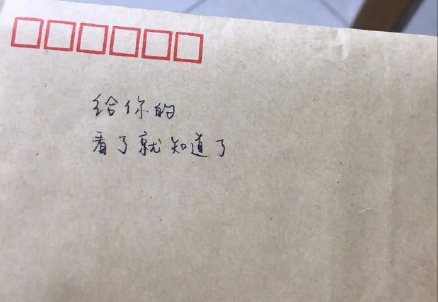 给你的
看了就知道了